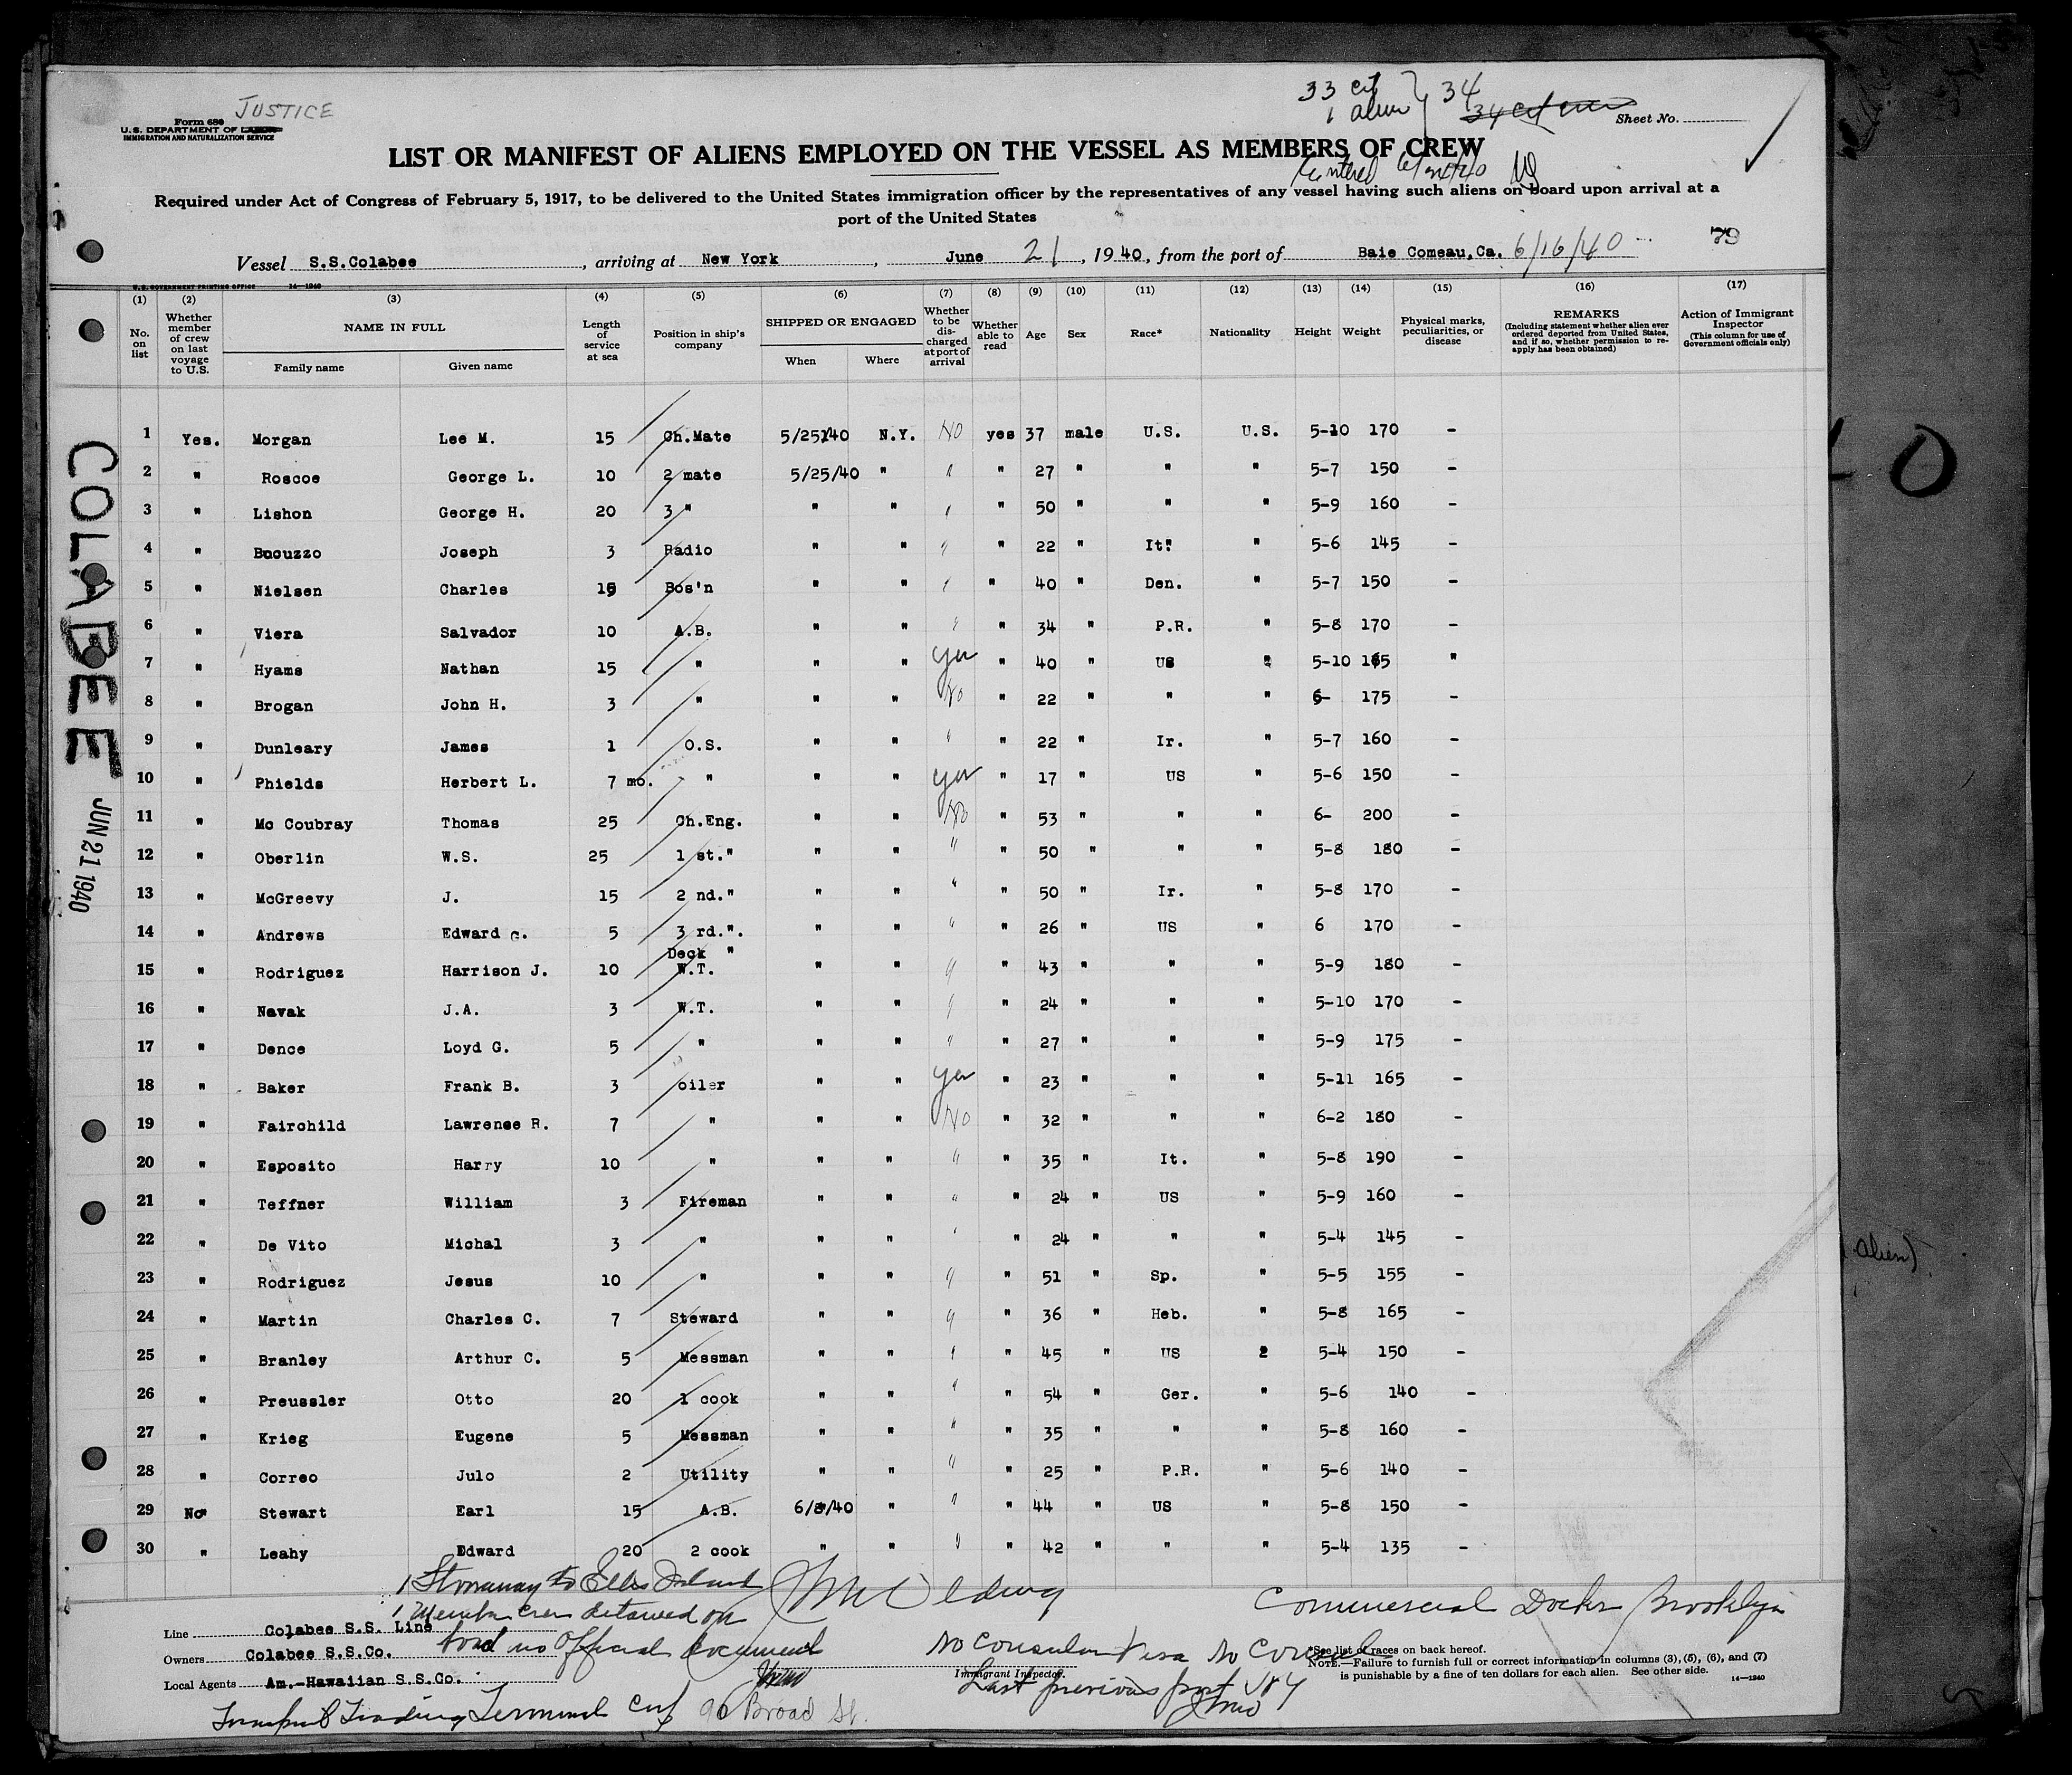 JUSTICE
33 cit
1 alien
34
Sheet No.
Form 680
U.S. DEPARTMENT OF LABOR
IMMIGRATION AND NATURALIZATION SERVICE
LIST OR MANIFEST OF ALIENS EMPLOYED ON THE VESSEL AS MEMBERS OF CREW
Required under Act of Congress of February 5, 1917, to be delivered to the United States immigration officer by the representatives of any vessel having such aliens on board upon arrival at a
port of the United States
Vessel S.S.Colabee, arriving at New York, June 21, 1940, from the port of Baie Comeau,Ca. 6/16/40
U.S. GOVERNMENT PRINTING OFFICE 14—1940
(1) (2) (3) (4) (5) (6) (7) (8) (9) (10) (11) (12) (13) (14) (15) (16) (17)
No. on list
Whether member of crew on last voyage to U.S.
NAME IN FULL
Family name
Given name
Length of service at sea
Position in ship's company
SHIPPED OR ENGAGED
When
Where
Whether to be discharged at port of arrival
Whether able to read
Age
Sex
Race*
Nationality
Height
Weight
Physical marks, peculiarities, or disease
REMARKS
(Including statement whether alien ever ordered deported from United States, and if so, whether permission to reapply has been obtained)
Action of Immigrant Inspector
(This column for use of Government officials only)
COLABEE
JUN 21 1940
1 Yes. Morgan Lee M. 15 Ch.Mate 5/25/40 N.Y. No yes 37 male U.S. U.S. 5-10 170 -
2 " Roscoe George L. 10 2 mate 5/25/40 " " " 27 " " " 5-7 150 -
3 " Lishon George H. 20 3 " " " " " 50 " " " 5-9 160 -
4 " Bucuzzo Joseph 3 Radio " " " " 22 " It. " 5-6 145 -
5 " Nielsen Charles 15 Bos'n " " " " 40 " Den. " 5-7 150 -
6 " Viera Salvador 10 A.B. " " " " 34 " P.R. " 5-8 170 -
7 " Hyams Nathan 15 " " " Yes " 40 " US " 5-10 165 "
8 " Brogan John H. 3 " " " No " 22 " " " 6- 175 -
9 " Dunleary James 1 O.S. " " " " 22 " Ir. " 5-7 160 -
10 " Phields Herbert L. 7 mo. " " " Yes " 17 " US " 5-6 150 -
11 " Mc Coubray Thomas 25 Ch.Eng. " " No " 53 " " " 6- 200 -
12 " Oberlin W.S. 25 1 st." " " " " 50 " " " 5-8 180 -
13 " McGreevy J. 15 2 nd." " " " " 50 " Ir. " 5-8 170 -
14 " Andrews Edward G. 5 3 rd.". " " " " 26 " US " 6 170 -
15 " Rodriguez Harrison J. 10 Deck " W.T. " " " " 43 " " " 5-9 180 -
16 " Navak J.A. 3 W.T. " " " " 24 " " " 5-10 170 -
17 " Dence Loyd G. 5 " " " " " 27 " " " 5-9 175 -
18 " Baker Frank B. 3 oiler " " Yes " 23 " " " 5-11 165 -
19 " Fairchild Lawrence R. 7 " " " No " 32 " " " 6-2 180 -
20 " Esposito Harry 10 " " " " " 35 " It. " 5-8 190 -
21 " Teffner William 3 Fireman " " " " 24 " US " 5-9 160 -
22 " De Vito Michal 3 " " " " " 24 " " " 5-4 145 -
23 " Rodriguez Jesus 10 " " " " " 51 " Sp. " 5-5 155 -
24 " Martin Charles C. 7 Steward " " " " 36 " Heb. " 5-8 165 -
25 " Branley Arthur C. 5 Messman " " " " 45 " US 2 5-4 150 -
26 " Preussler Otto 20 1 cook " " " " 54 " Ger. " 5-6 140 -
27 " Krieg Eugene 5 Messman " " " " 35 " " " 5-8 160 -
28 " Correo Julo 2 Utility " " " " 25 " P.R. " 5-6 140 -
29 No Stewart Earl 15 A.B. 6/8/40 " " " 44 " US " 5-8 150 -
30 " Leahy Edward 20 2 cook " " " " 42 " " " 5-4 135 -
1 Stowaway to Ellis Island
1 Member Crew detained on
board no Official document
Commercial Docks Brooklyn
Line Colabee S.S. Line
Owners Colabee S.S.Co.
Local Agents Am.-Hawaiian S.S.Co.
No Consular Visa No Consul
Immigrant Inspector.
Last previous port NY
*See list of races on back hereof.
NOTE.—Failure to furnish full or correct information in columns (3), (5), (6), and (7)
is punishable by a fine of ten dollars for each alien. See other side.
14—1940
Trading Terminal Corp 90 Broad St.
alien)